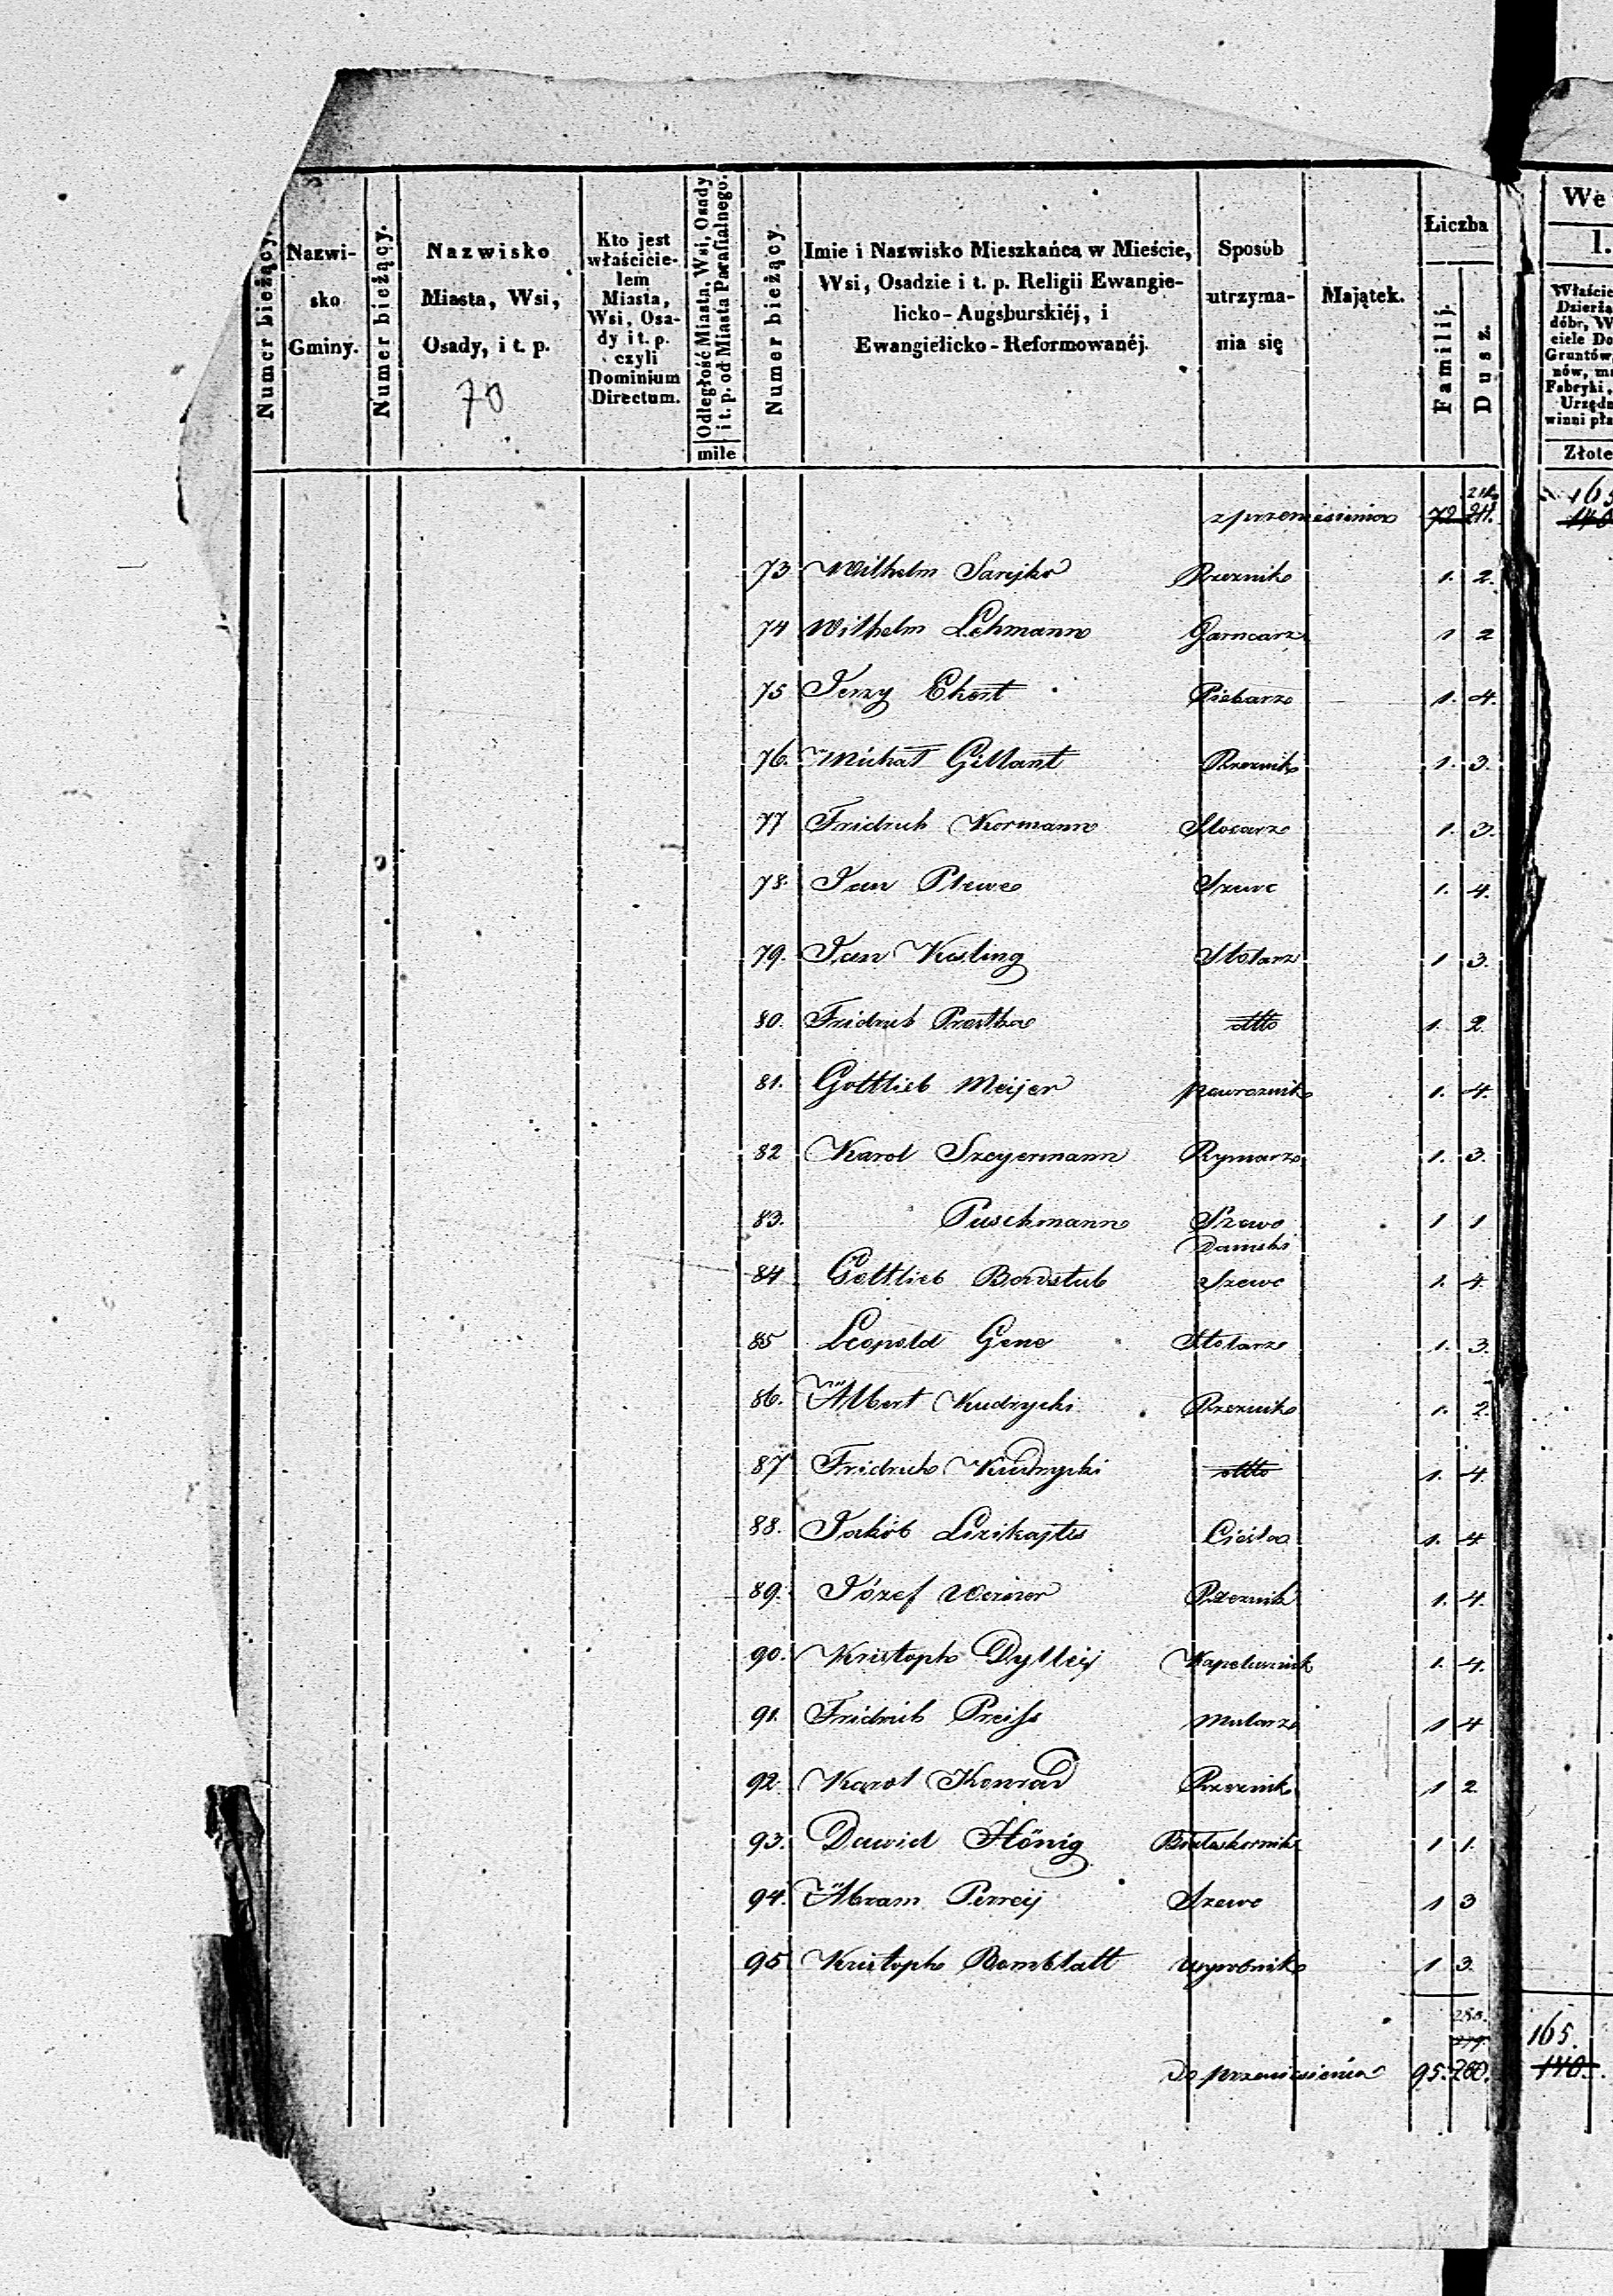 Numer bieżący.
Nazwi-
sko
Gminy.
Numer bieżący.
Nazwisko
Miasta, Wsi,
Osady, i t. p.
70
Kto jest
właścicie-
lem
Miasta,
Wsi, Osa-
dy i t. p.
czyli
Dominium
Directum.
Odległość Miasta, Wsi, Osady
i t. p. od Miasta Parafialnego.
mile
Numer bieżący.
Imie i Nazwisko Mieszkańca w Mieście,
Wsi, Osadzie i t. p. Religii Ewangie-
licko-Augsburskiéj, i
Ewangielicko-Reformowanéj.
Sposób
utrzyma-
nia się
Majątek.
Liczba
Familij.
Dusz.
We
1.
Właście
Dzierża
dóbr, W
ciele Do
Gruntów,
nów, mu
Fabryki,
Urzędn
winni pła
Złote
z przeniesienia 72
73 Wilhelm Sarejko Rzeznik 1. 2.
74 Wilhelm Lehmann Garncarz 1 2
75 Jerzy Ekert Piekarz 1. 4.
76. Michał Gillant Rzeznik 1. 3.
77 Fridrich Kormann Stolarz 1. 3.
78. Jan Plewe Szewc 1. 4.
79. Jan Kesling Stolarz 1 3.
80. Fridrich Prestha dtto 1. 2.
81. Gottlieb Meijer powroznik 1. 4.
82 Karol Szeyermann Rymarz 1. 3.
83. Puschmann Szewc 1 1
Damski
84 Gottlieb Bordstub Szewc 1. 4.
85 Leopold Gene Stolarz 1. 3.
86. Albert Kudrycki Rzeznik 1. 2
87 Fridrich Kudrycki dtto 1. 4.
88. Jakób Lizikajtis Cieśla 1. 4
89. Józef Weiner Rzeznik 1. 4.
90. Kristoph Dylleij Kapelusznik 1. 4.
91. Fridrich Preiss Mularz 1 4
92. Karol Konrad Rzeznik 1 2
93. Dawid Hönig Białoskornik 1 1.
94. Abram Perreij Szewc 1 3
95 Kristoph Bomblatt wyrobnik 1 3.
165.
Do przeniesienia 95. 280. 140.